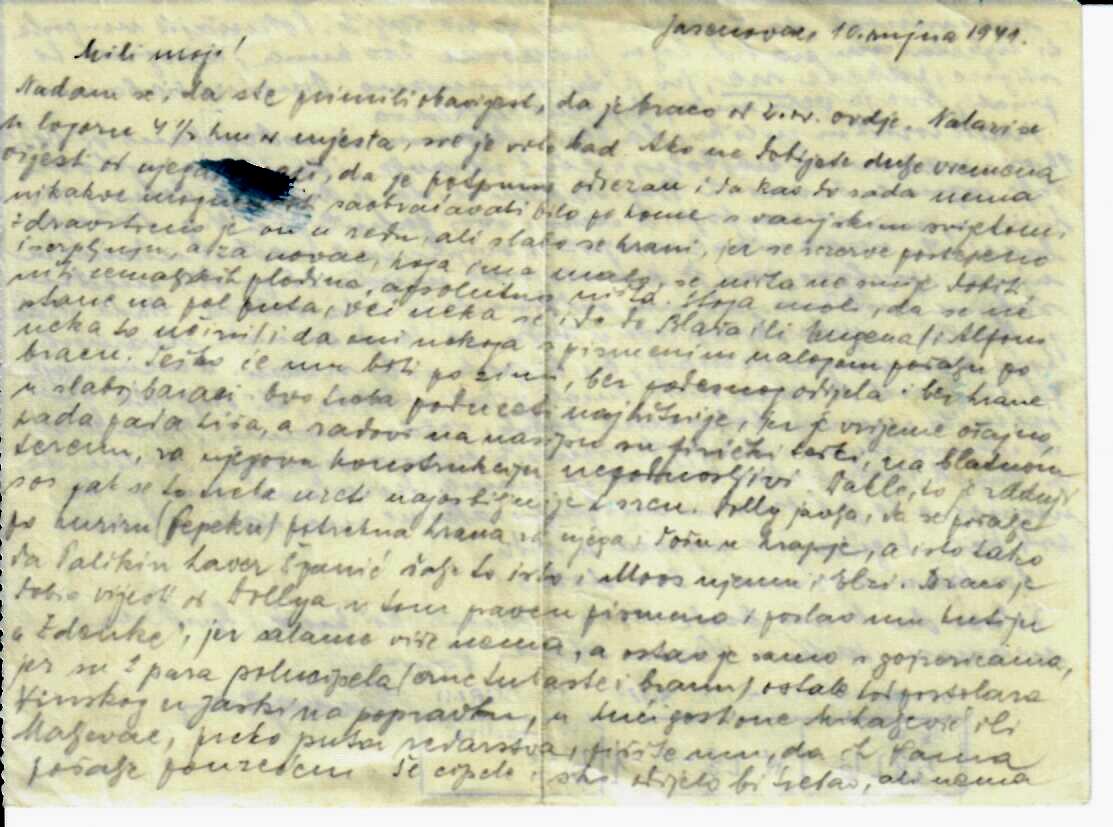 Jasenovac, 10. rujna 1941.
Mili moji!
Nadam se, da ste primili obavijest, da je braco od 2. ov. ovdje. Nalazi se
u logoru 4 1/2 km od mjesta, sve je vrlo kad. Ako ne dobijete dulje vremena
vijest od njega, da je potpuno odrezan i da kao do sada nema
nikakve saobraćavati bilo po kome s vanjskim svijetom.
Zdravstveno je on u redu, ali slabo se hrani, jer se rezerve postepeno
iscrpljuju, a za novac, koga ima malo, se ništa ne može dobiti,
niti zemaljskih plodina, apsolutno ništa. moli, da se ne
stane na pol puta, već neka se ide do Blaža ili Eugena i Alfons
neka to učini i da oni nekoga s pismenim nalogom pošalju po
bracu. Teško će mu biti po zimi, bez podesnog odijela i bez hrane
u slaboj baraci. Ovo treba poduzeti najhitnije, jer je vrijeme očajno,
pada gusta kiša, a radovi na nasipu su fizički teški, na blatnom
terenu, za njegovu konstrukciju nepodnosljivi. Dakle, to je
sos pak se to treba uzeti najozbiljnije k srcu. Dolly javlja, da se pošalje
po (Pepeku) potrebna hrana za njega i Došu u Krapje, a isto tako
da Palikin Xaver Španić šalje to isto i Moos njemu i Elzi. Braco je
dobio vijest od Dollya u tom pravcu pismeno i poslao mu kutiju
"Zdenke", jer salame više nema, a ostao je samo s gojzericama,
jer su 2 para polucipela (crne lukaste i braun) ostale kod postolara
Vinskog u Jaski na popravku, u kući gostione Mihaljević ili
Maljevac, preko puta redarstva, pišite mu, da ih Vama
pošalje pouzećem. Te cipele i sko odijelo bi trebao, ali nema